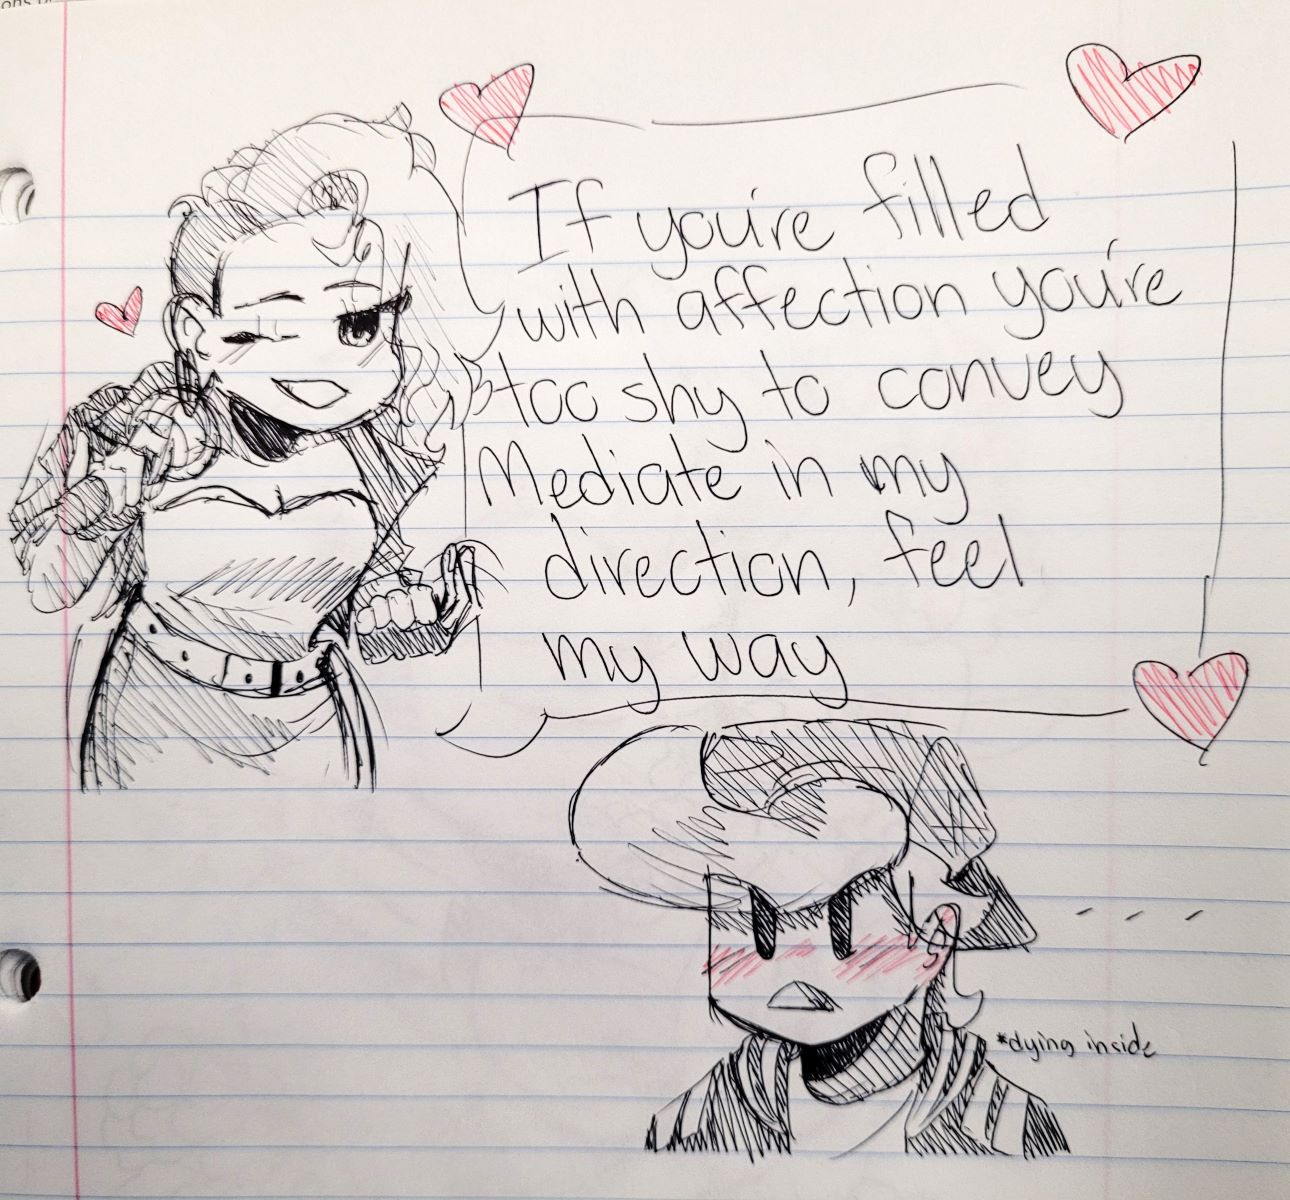 If you're filled
with affection you're
too shy to convey
Mediate in my
direction, feel
my way
*dying inside